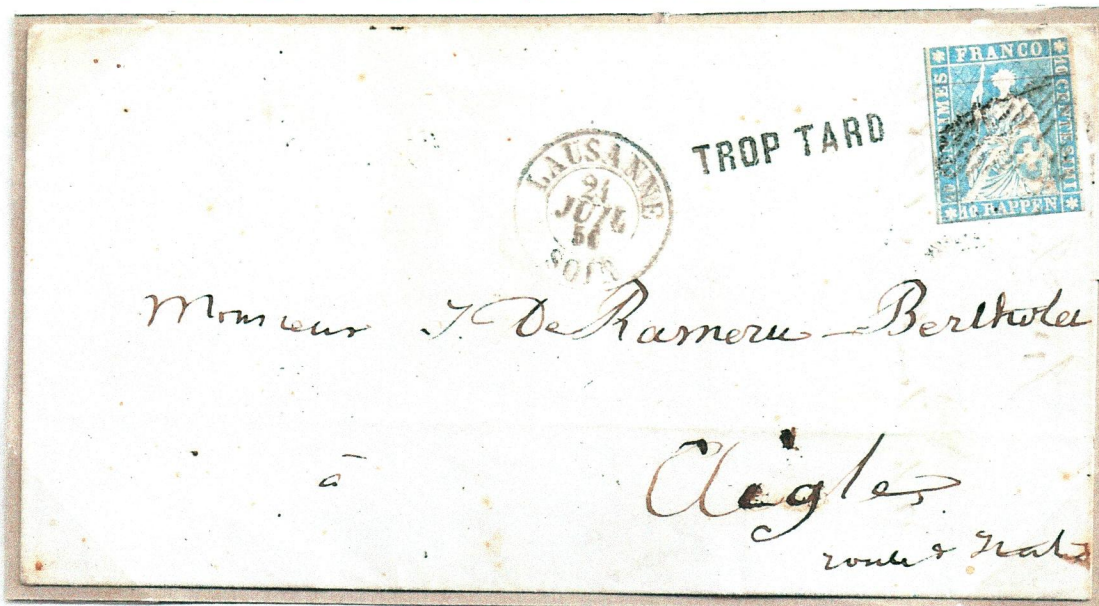 FRANCO
10 CENTESIMI
10 RAPPEN
TROP TARD
LAUSANNE
21
JUIL
56
SOIR
Monsieur J. De Rameru - Berthola
à
Aigle
route